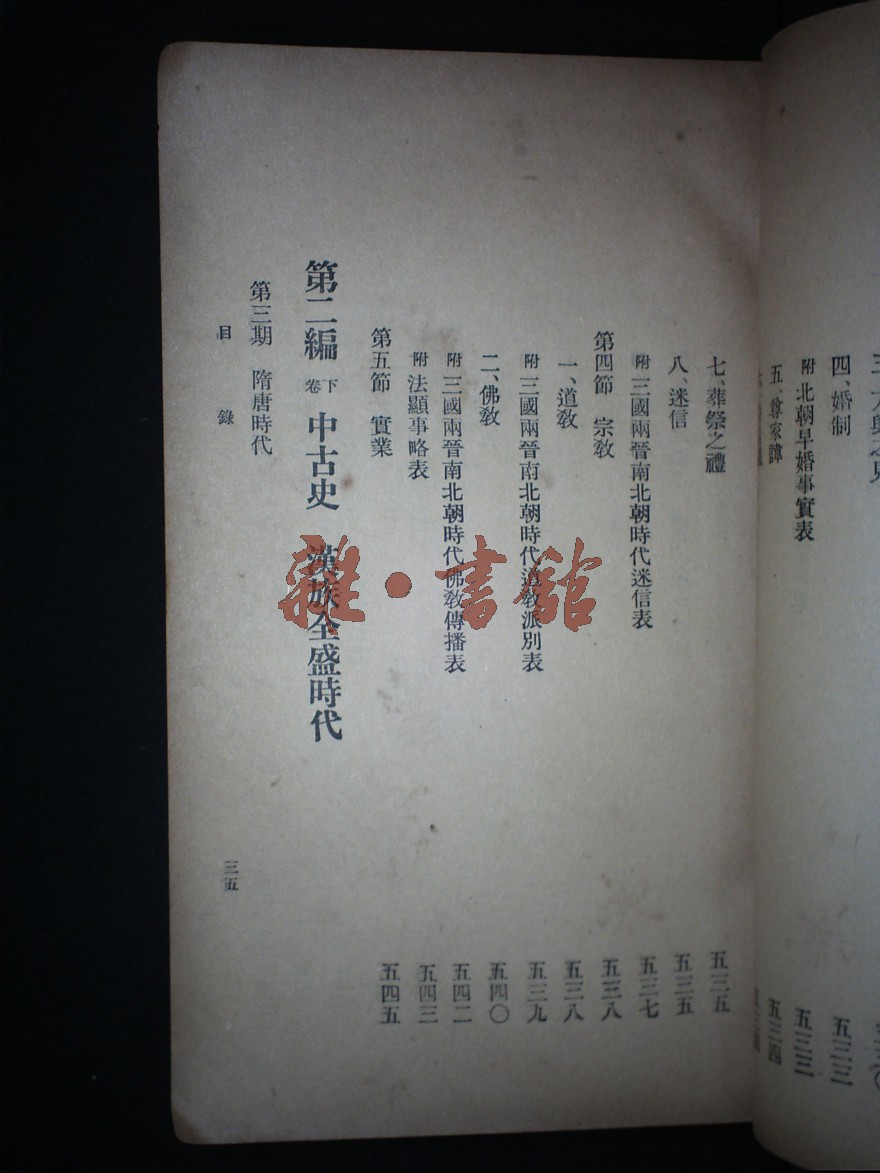 四、婚制 五三三
附 北朝早婚事實表 五三三
五、尊家諱 五三四
七、葬祭之禮 五三五
八、迷信 五三五
附 三國兩晉南北朝時代迷信表 五三七
第四節 宗教 五三八
一、道教 五三八
附 三國兩晉南北朝時代道教派別表 五三九
二、佛教 五四〇
附 三國兩晉南北朝時代佛教傳播表 五四二
附 法顯事略表 五四三
第五節 實業 五四五
第二編 下卷 中古史 漢族全盛時代
第三期 隋唐時代
目錄 三五
雜·書館